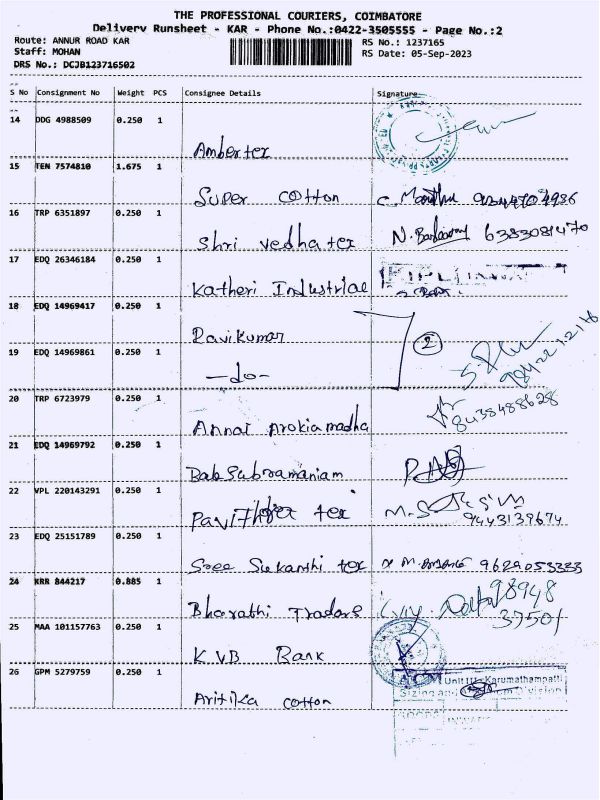 THE PROFESSIONAL COURIERS, COIMBATORE
Delivery Runsheet - KAR - Phone No.:0422-3505555 - Page No.:2
Route: ANNUR ROAD KAR
Staff: MOHAN
DRS No.: DCJB123716502
RS No.: 1237165
RS Date: 05-Sep-2023
S No Consignment No Weight PCS Consignee Details Signature
14 DDG 4988509 0.250 1
Ambertex
15 TEN 7574810 1.675 1
Super cotton
16 TRP 6351897 0.250 1
Shri vedha tex N. 6383081470
17 EDQ 26346184 0.250 1
Katheri Industrial
18 EDQ 14969417 0.250 1
Ravikumar
19 EDQ 14969861 0.250 1
-do- 2
20 TRP 6723979 0.250 1
Annai Arokiamadha 8438488628
21 EDQ 14969792 0.250 1
Balasubramaniam
22 VPL 220143291 0.250 1
Pavithra tex 9443139674
23 EDQ 25151789 0.250 1
Sree Sukanthi tex 9629053333
24 KRR 844217 0.885 1
Bharathi Traders 98948
37501
25 MAA 101157763 0.250 1
KVB Bank
26 GPM 5279759 0.250 1
Aritika cotton
Unit III - Karumathampatti
Sizing and Division